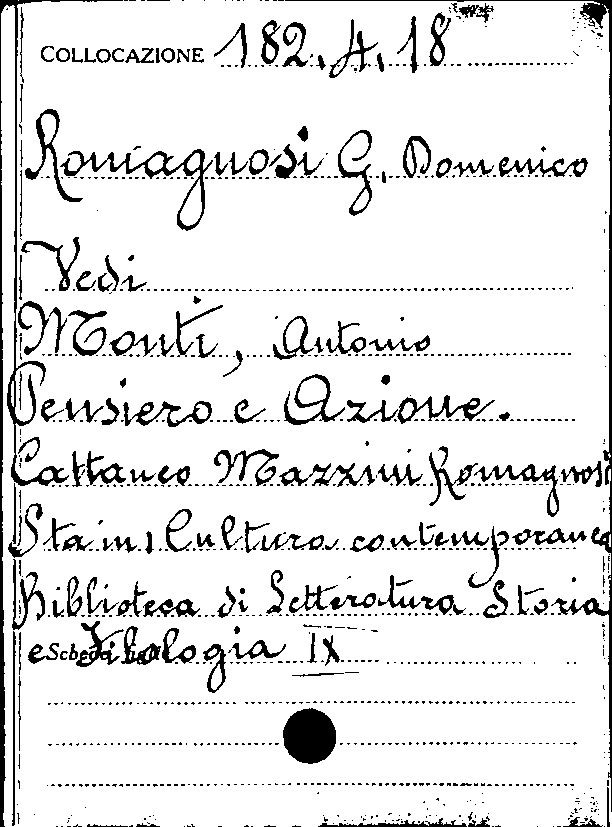 COLLOCAZIONE 182.4.18
Romagnosi G. Domenico
Vedi
Monti, Antonio
Pensiero e Azione.
Cattaneo Mazzini Romagnosi
Sta in: Cultura contemporanea
Biblioteca di Letteratura Storia
e Filologia IX